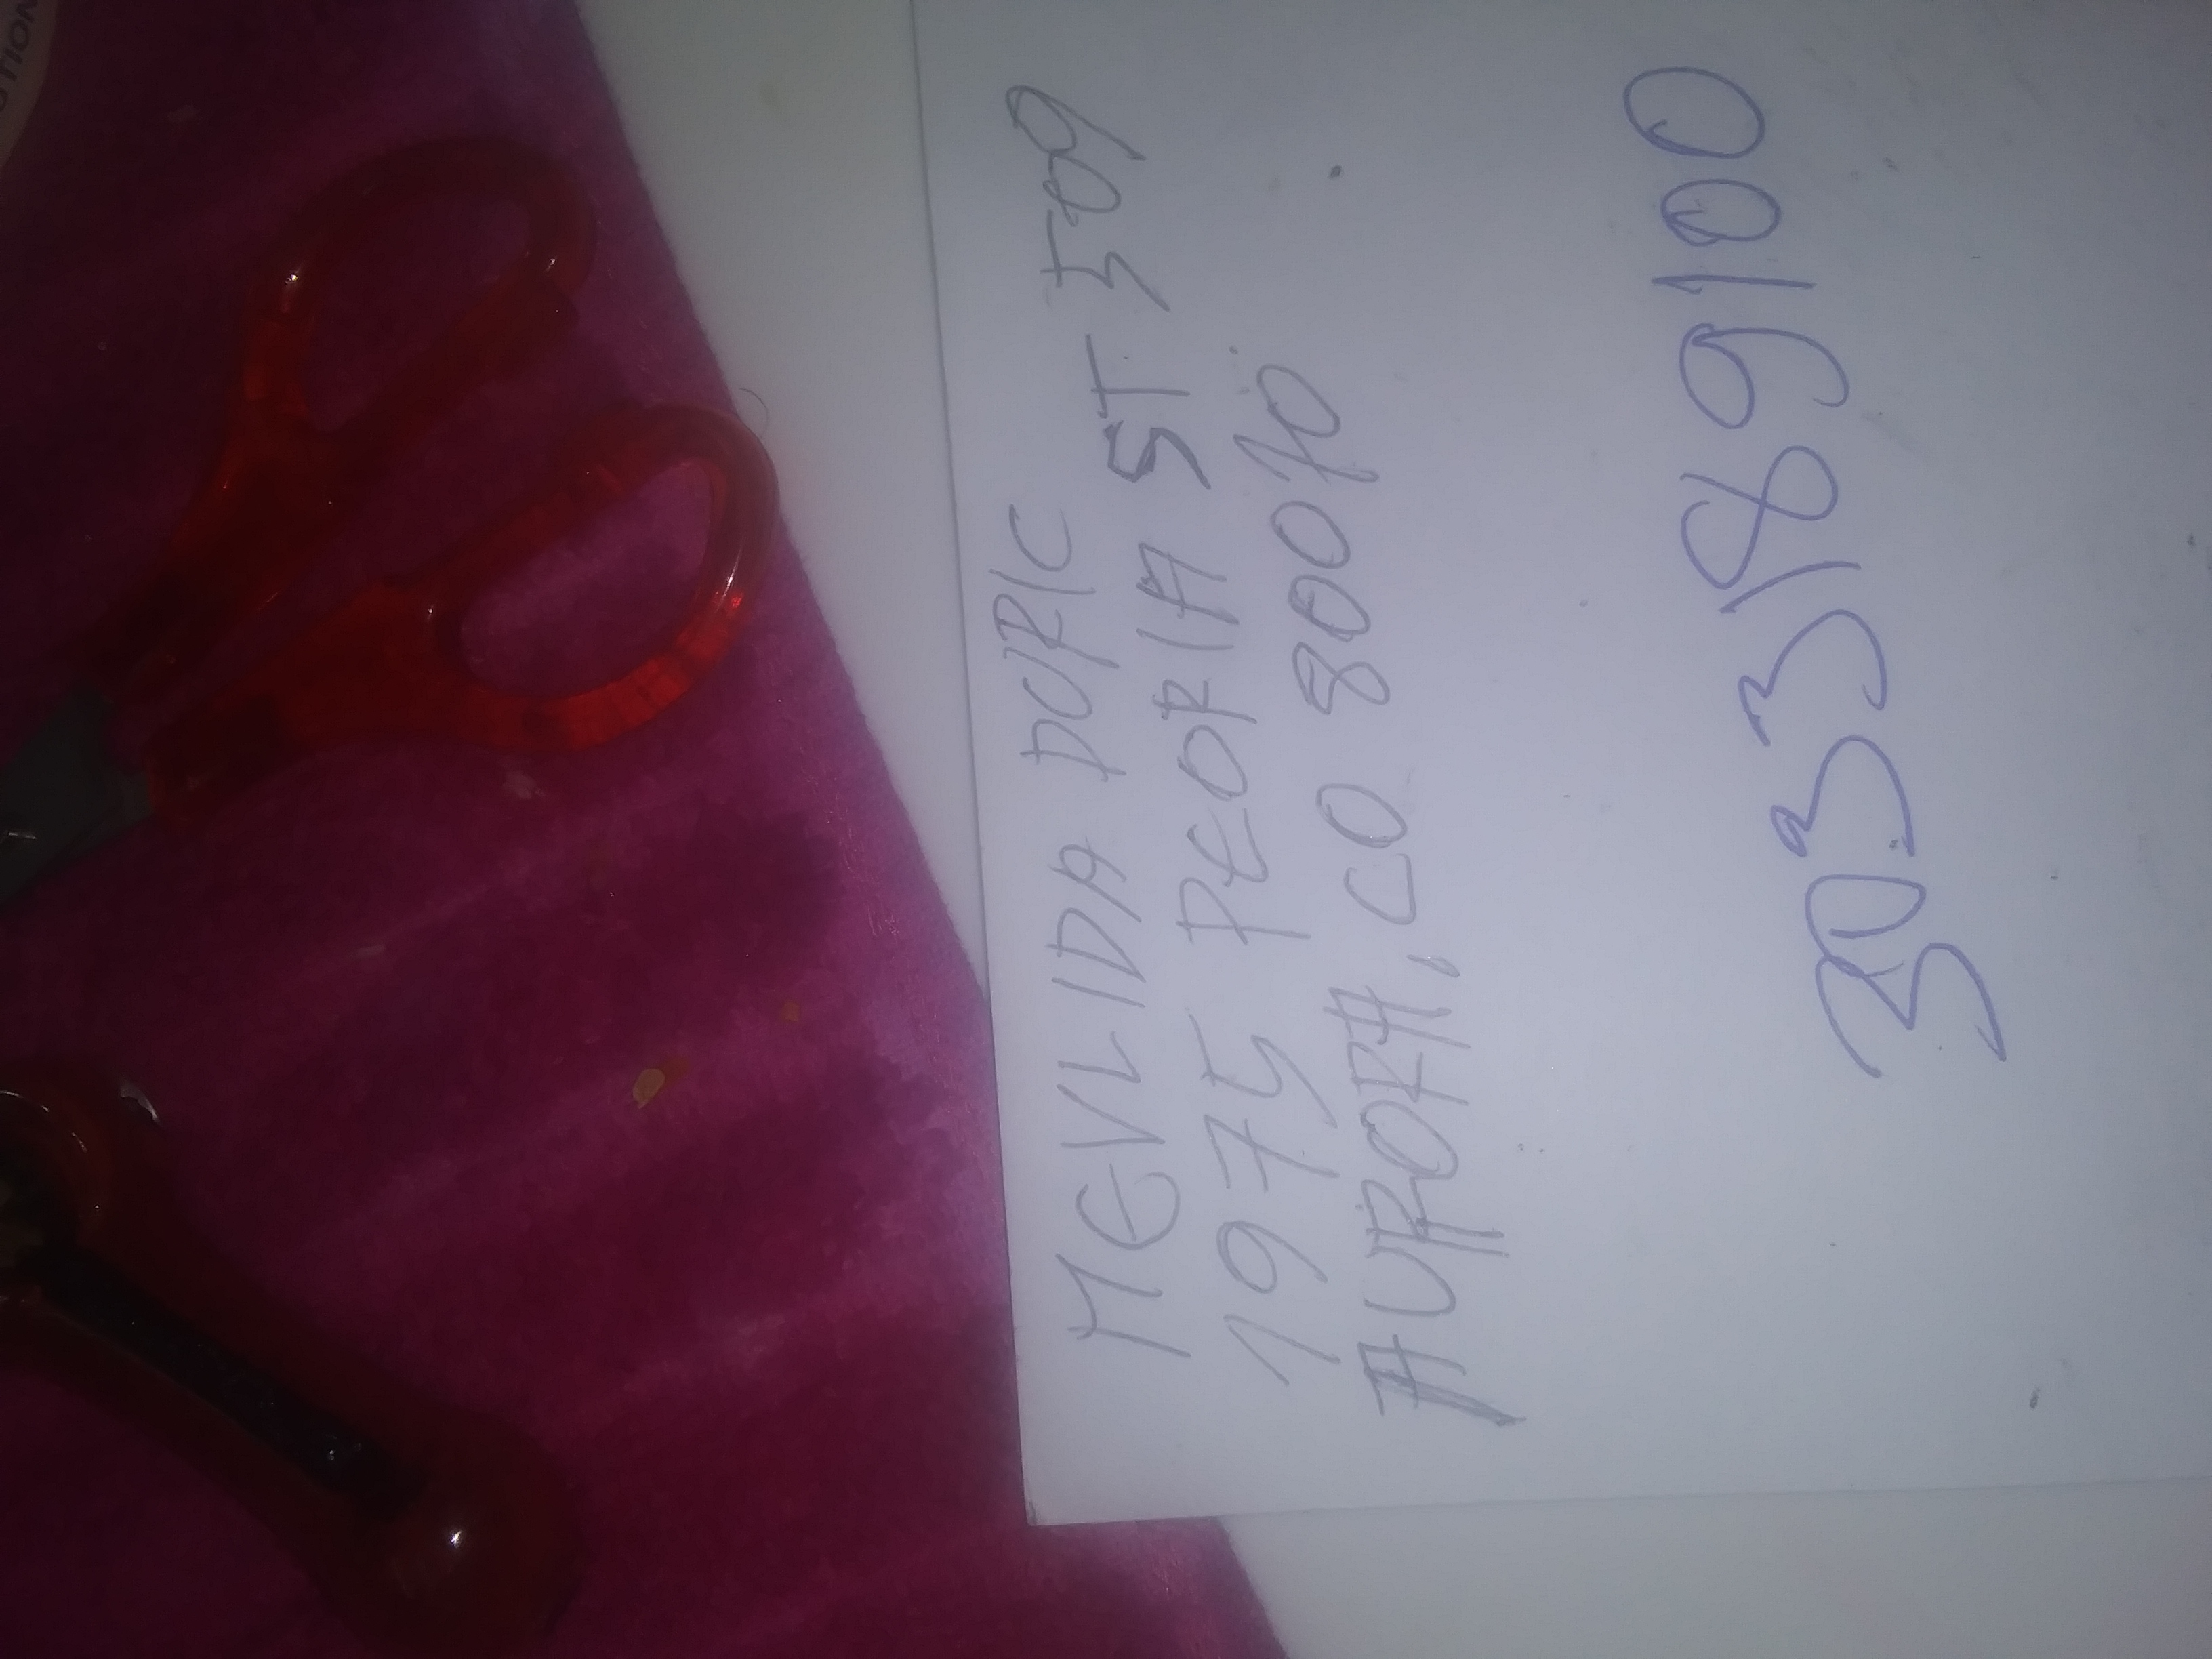 UTION
MEVLIDA DURIC
1975 PEORIA ST 509
AURORA, CO 80010
3033189100